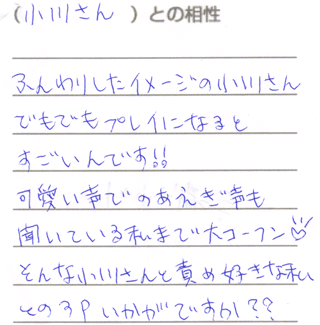 （小川さん）との相性
ふんわりしたイメージの小川さん
でもでもプレイになると
すごいんです!!
可愛い声でのあえぎ声も
聞いている私まで大コーフン
そんな小川さんと責め好きな私
との3Pいかがですか??